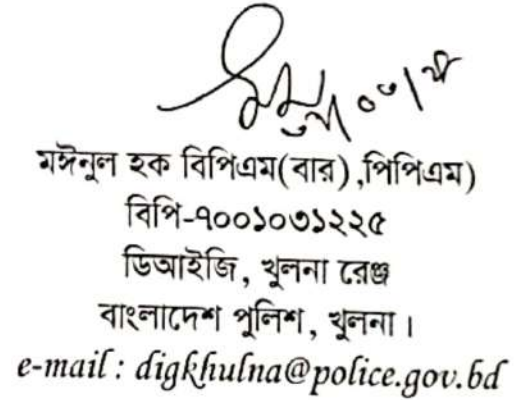 মঈনুল হক বিপিএম(বার) ,পিপিএম)
বিপি-৭০০১০৩১২২৫
ডিআইজি, খুলনা রেঞ্জ
বাংলাদেশ পুলিশ, খুলনা।
e-mail : digkhulna@police.gov.bd